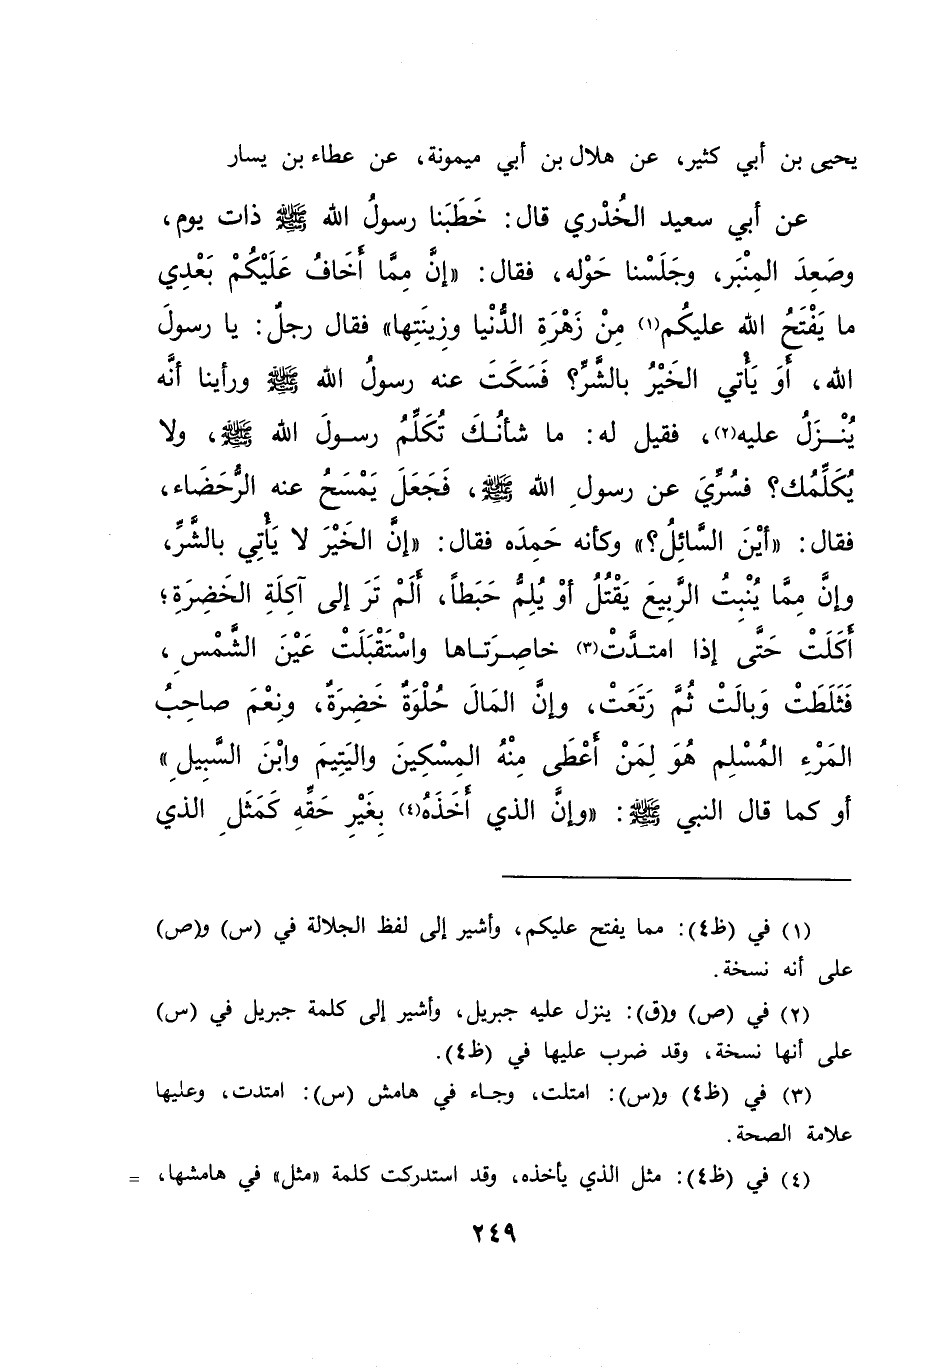 يحيى بن أبي كثير، عن هلال بن أبي ميمونة، عن عطاء بن يسار
عن أبي سعيد الخُدْري قال: خَطَبَنا رسولُ الله ﷺ ذات يوم،
وصَعِدَ المِنْبَر، وجَلَسْنا حَوْله، فقال: «إنَّ مِمَّا أَخَافُ عَلَيْكُمْ بَعْدِي
ما يَفْتَحُ الله عليكُم(١) مِنْ زَهْرَةِ الدُّنْيا وزِينَتِها» فقال رجلٌ: يا رسولَ
الله، أَوَ يَأْتي الخَيْرُ بالشَّرِّ؟ فَسَكَتَ عنه رسولُ الله ﷺ ورأينا أنَّه
يُنْزَلُ عليه(٢)، فقيل له: ما شأنُكَ تُكَلِّمُ رسولَ الله ﷺ، ولا
يُكَلِّمُك؟ فسُرِّيَ عن رسولِ الله ﷺ، فَجَعَلَ يَمْسَحُ عنه الرُّحَضَاء،
فقال: «أيْنَ السَّائِلُ؟» وكأنه حَمِدَه فقال: «إنَّ الخَيْرَ لا يَأْتِي بالشَّرِّ،
وإنَّ مِمَّا يُنْبِتُ الرَّبِيعَ يَقْتُلُ أوْ يُلِمُّ حَبَطاً، أَلَمْ تَرَ إلى آكلَةِ الخَضِرَةِ؛
أَكَلَتْ حَتَّى إذا امتدَّتْ(٣) خاصِرَتاها واسْتَقْبَلَتْ عَيْنَ الشَّمْسِ،
فَثَلَطَتْ وَبالَتْ ثُمَّ رَتَعَتْ، وإنَّ المَالَ حُلْوَةٌ خَضِرَةٌ، ونِعْمَ صاحِبُ
المَرْءِ المُسْلِمِ هُوَ لِمَنْ أَعْطَى مِنْهُ المِسْكِينَ واليَتِيمَ وابْنَ السَّبِيلِ»
أو كما قال النبي ﷺ: «وإنَّ الذي أَخَذَهُ(٤) بِغَيْرِ حَقِّهِ كَمَثَلِ الذي
(١) في (ظ٤): مما يفتح عليكم، وأشير إلى لفظ الجلالة في (س) و(ص)
على أنه نسخة.
(٢) في (ص) و(ق): ينزل عليه جبريل، وأشير إلى كلمة جبريل في (س)
على أنها نسخة، وقد ضرب عليها في (ظ٤).
(٣) في (ظ٤) و(س): امتلت، وجاء في هامش (س): امتدت، وعليها
علامة الصحة.
(٤) في (ظ٤): مثل الذي يأخذه، وقد استدركت كلمة «مثل» في هامشها، =
٢٤٩